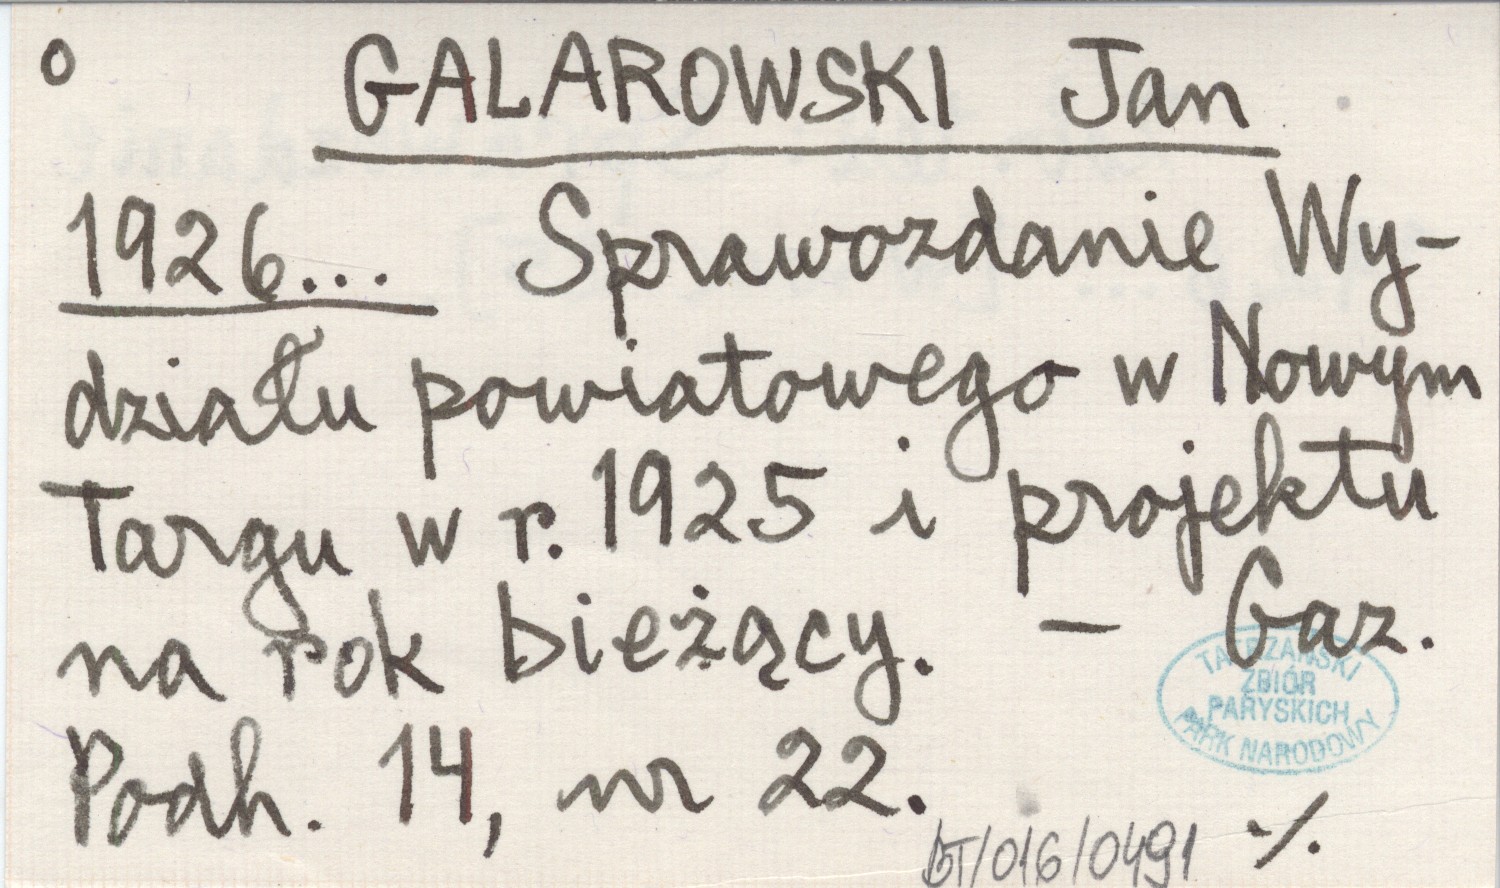 o GALAROWSKI Jan
1926... Sprawozdanie Wy-
działu powiatowego w Nowym
Targu w r. 1925 i projektu
na rok bieżący. — Gaz.
Podh. 14, nr 22.
TATRZAŃSKI
ZBIÓR
PARYSKICH
PARK NARODOWY
BT/016/0491 ./.